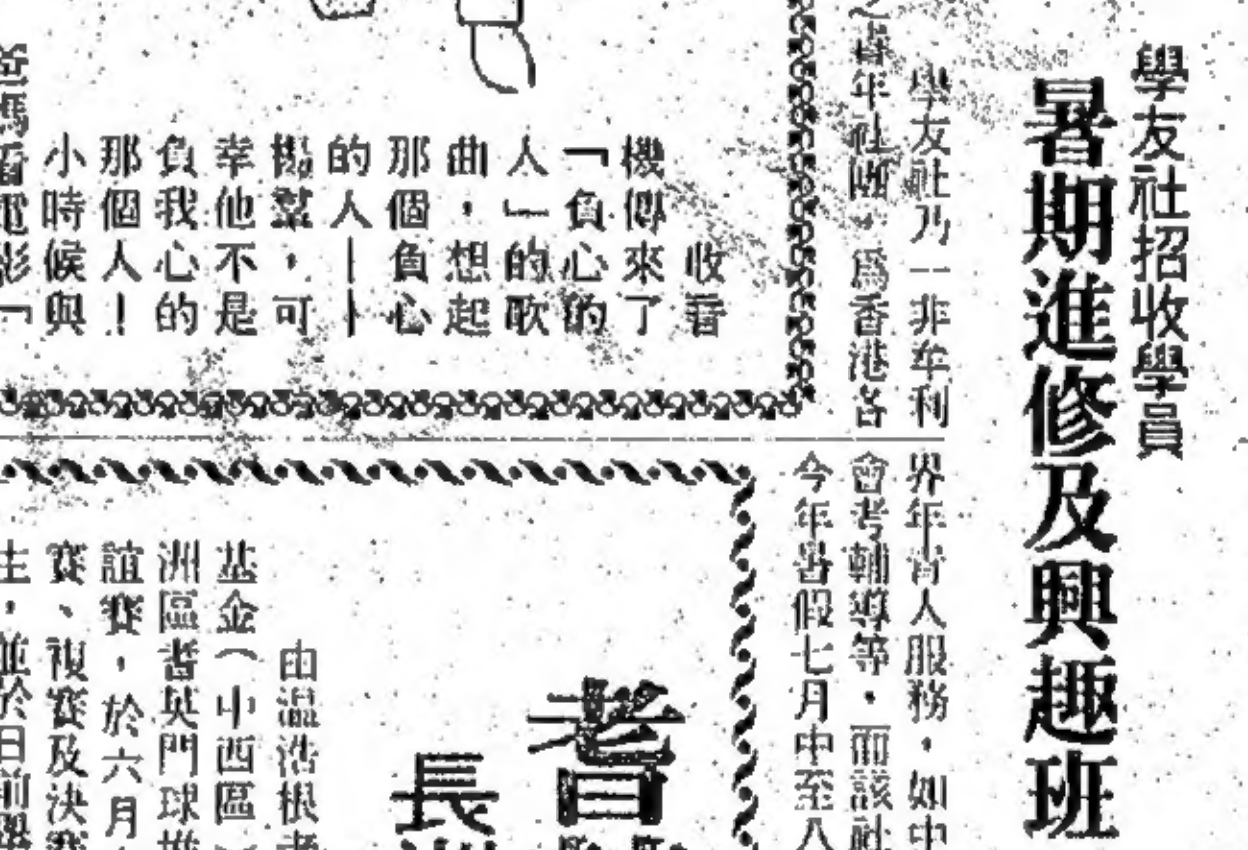 學友社招收學員
暑期進修及興趣班
學友社乃一非牟利
之青年社團，為香港各
界年青人服務，如中
會考輔導等，而該社
今年暑假七月中至八
收音
機傳來了
「負心的
人」的歌
曲，想起
那個負心
的人——
幸他不是
負我心的
那個人！
小時候與
爸媽看電影「
耆
長
由温浩根
基金（中西區
洲區耆英門球
誼賽，於六月
賽、複賽及決賽
主，並於日前